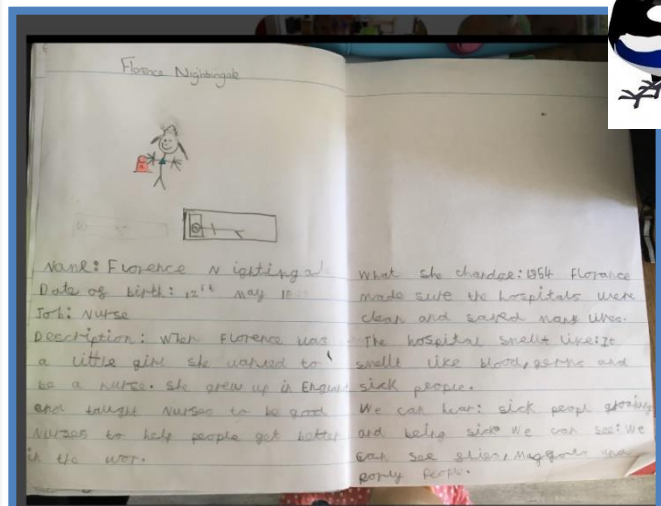 Florence Nightingale
Name: Florence N ightinga
Date of birth: 12th May
Job: Nurse
Description: When Florence was
a little girl she wanted to
be a nurse. She grew up in England
and taught Nurses to be good
Nurses to help people get better
in the wor.
What she chandge: 1954 Florance
made sure the hospitals were
clean and saved many lives.
The hospital smellt like: It
smellt like blood, germs and
sick people.
We can hear: sick peopl groaning
and being sick We can see: We
can see slien, maggots and
poorly people.